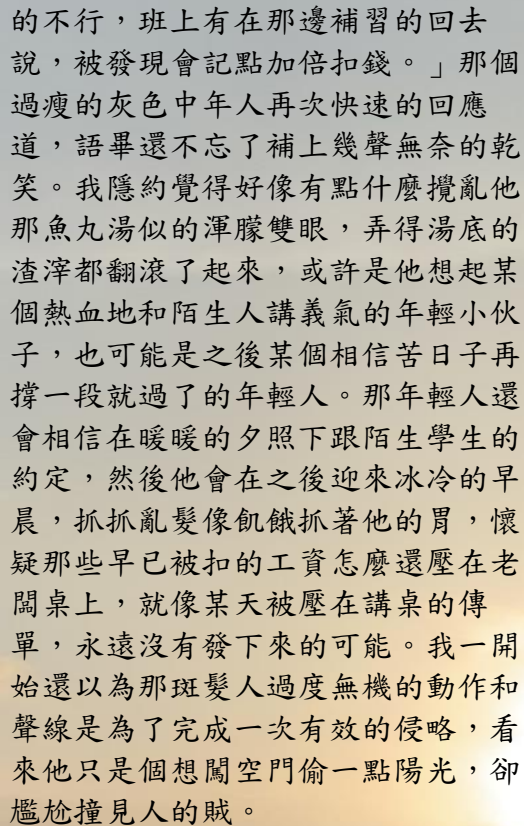 的不行，班上有在那邊補習的回去
說，被發現會記點加倍扣錢。」那個
過瘦的灰色中年人再次快速的回應
道，語畢還不忘了補上幾聲無奈的乾
笑。我隱約覺得好像有點什麼攪亂他
那魚丸湯似的渾朦雙眼，弄得湯底的
渣滓都翻滾了起來，或許是他想起某
個熱血地和陌生人講義氣的年輕小伙
子，也可能是之後某個相信苦日子再
撐一段就過了的年輕人。那年輕人還
會相信在暖暖的夕照下跟陌生學生的
約定，然後他會在之後迎來冰冷的早
晨，抓抓亂髮像飢餓抓著他的胃，懷
疑那些早已被扣的工資怎麼還壓在老
闆桌上，就像某天被壓在講桌的傳
單，永遠沒有發下來的可能。我一開
始還以為那斑髮人過度無機的動作和
聲線是為了完成一次有效的侵略，看
來他只是個想闖空門偷一點陽光，卻
尷尬撞見人的賊。